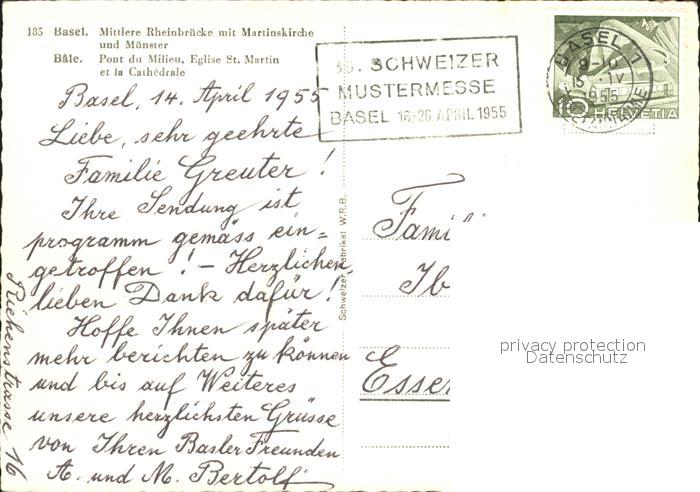 185 Basel. Mittlere Rheinbrücke mit Martinskirche
und Münster
Bâle. Pont du Milieu, Eglise St. Martin
et la Cathédrale
Basel, 14. April 1955
Liebe, sehr geehrte
Familie Greuter!
Ihre Sendung ist
programm gemäss ein=
getroffen! – Herzlichen,
lieben Dank dafür!
Hoffe Ihnen später
mehr berichten zu können
und bis auf Weiteres
unsere herzlichsten Grüsse
von Ihren Basler Freunden
A. und M. Bertolf
Riehenstrasse 16
Schweizer Fabrikat W.R.B.
SCHWEIZER
MUSTERMESSE
BASEL 16-26. APRIL 1955
BASEL 1
1955
10 HELVETIA
Fami
Ib
Essen
privacy protection
Datenschutz